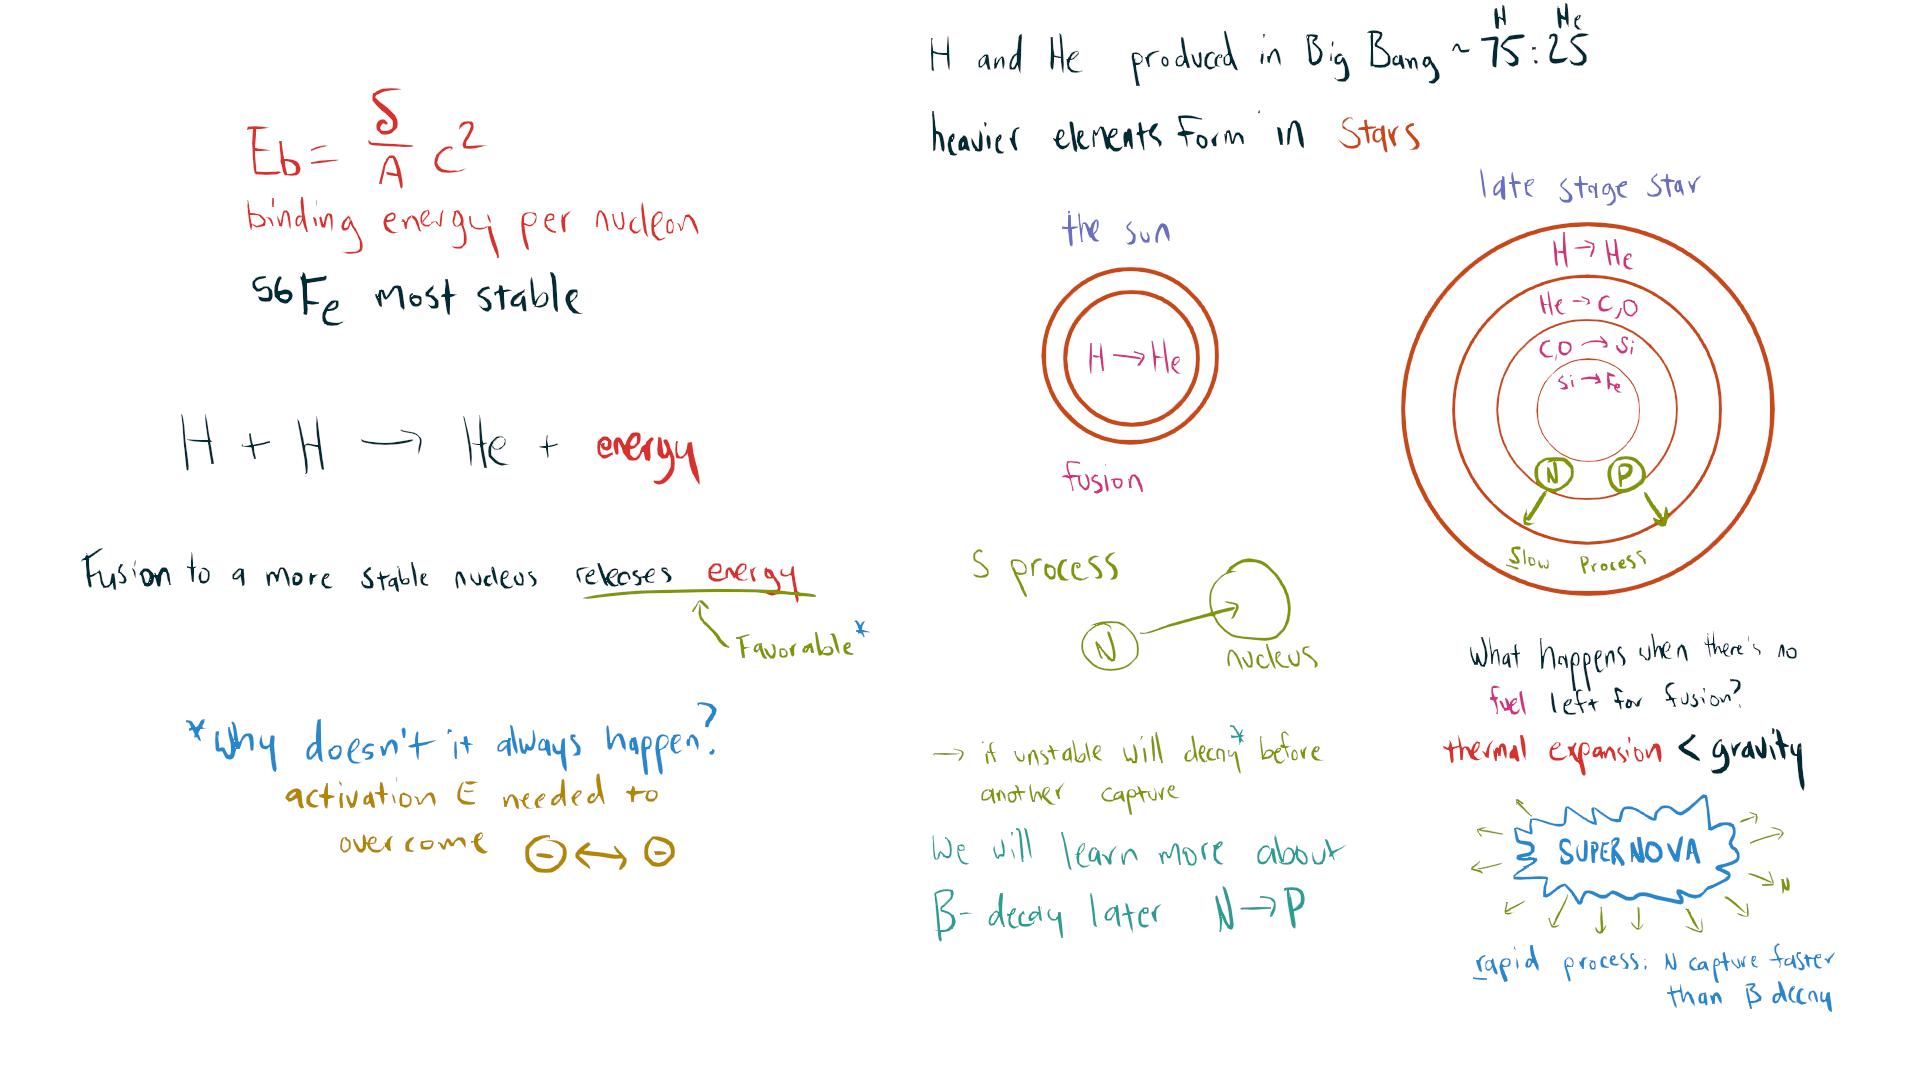 Eb = δ/A c²
binding energy per nucleon
⁵⁶Fe most stable
H + H → He + energy
Fusion to a more stable nucleus releases energy
Favorable*
*Why doesn't it always happen?
activation E needed to
overcome ⊖ ↔ ⊖
H He
H and He produced in Big Bang ~ 75:25
heavier elements Form in Stars
the sun
H → He
fusion
late stage star
H → He
He → C,O
C,O → Si
Si → Fe
N P
Slow Process
S process
N
nucleus
→ if unstable will decay* before
another capture
We will learn more about
β- decay later N → P
What happens when there's no
fuel left for fusion?
thermal expansion < gravity
SUPERNOVA
N
rapid process: N capture faster
than β decay